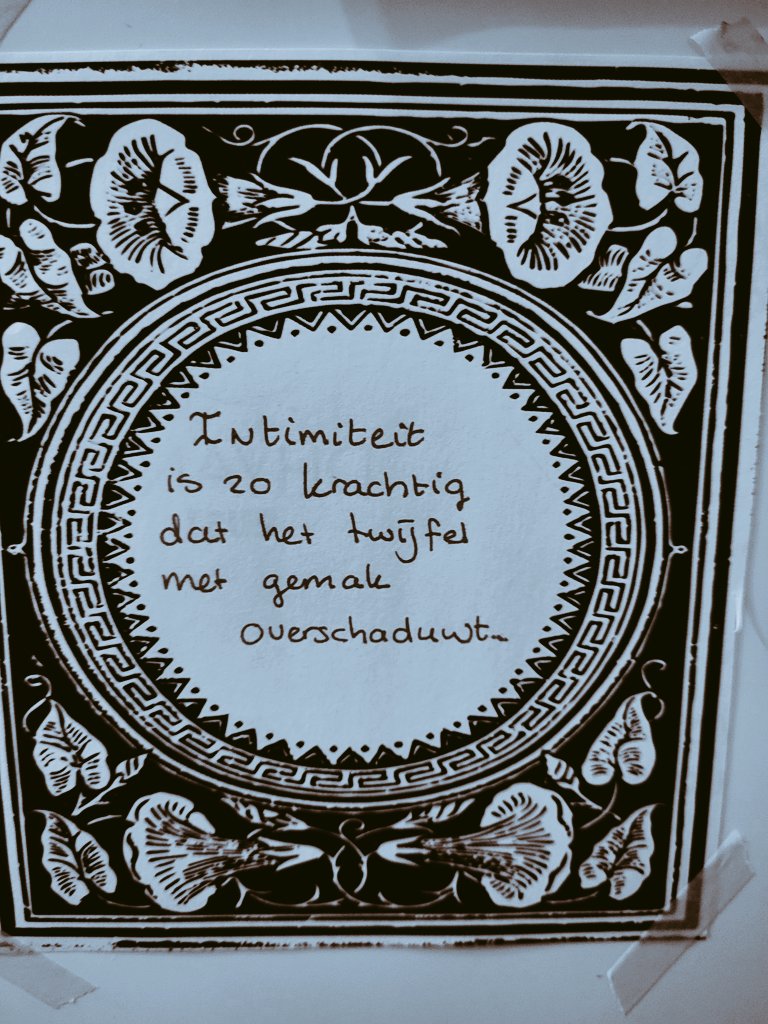 Intimiteit
is zo krachtig
dat het twijfel
met gemak
overschaduwt...